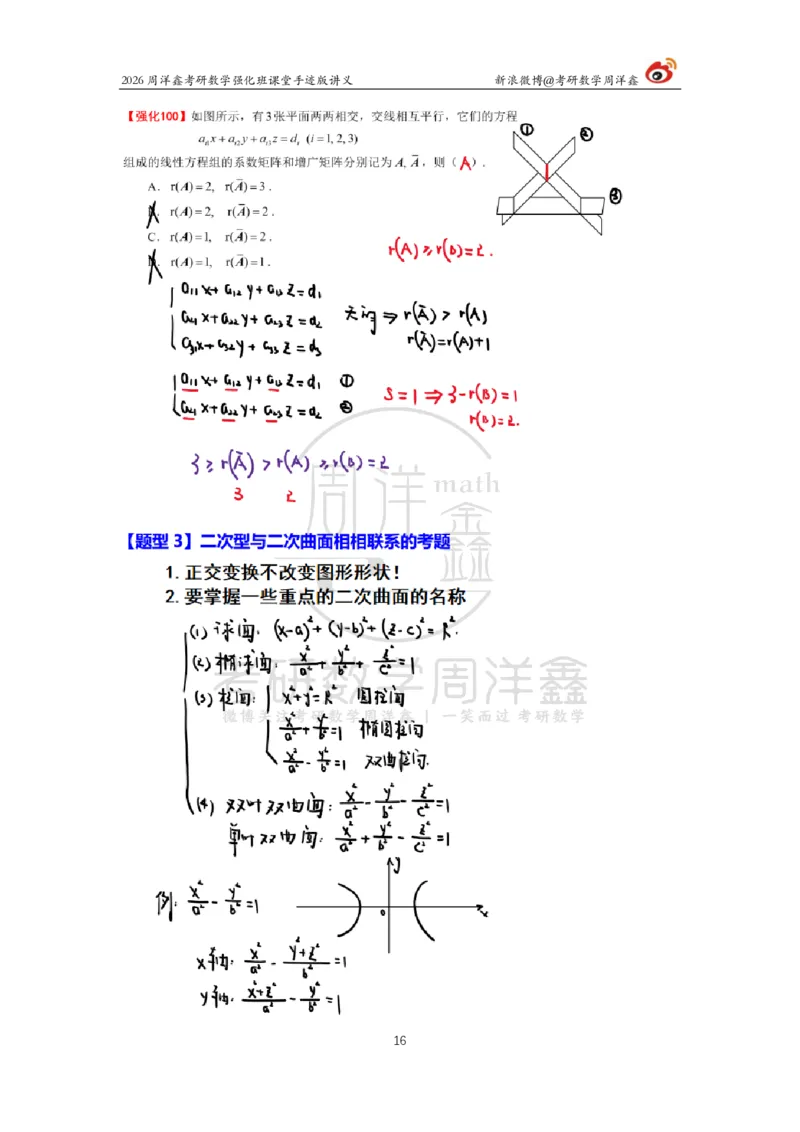 2026周洋鑫考研数学强化班课堂手迹版讲义 新浪微博@考研数学周洋鑫
【强化100】如图所示，有3张平面两两相交，交线相互平行，它们的方程
a_{i1}x+a_{i2}y+a_{i3}z=d_i (i=1,2,3)
① ②
③
组成的线性方程组的系数矩阵和增广矩阵分别记为A, Ā，则（ A ）.
A. r(A)=2, r(Ā)=3.
B. r(A)=2, r(Ā)=2.
C. r(A)=1, r(Ā)=2.
D. r(A)=1, r(Ā)=1.
r(A)≥r(B)=2.
a₁₁x+a₁₂y+a₁₃z=d₁
a₂₁x+a₂₂y+a₂₃z=d₂
a₃₁x+a₃₂y+a₃₃z=d₃
无解⇒r(Ā)>r(A)
r(Ā)=r(A)+1
a₁₁x+a₁₂y+a₁₃z=d₁ ①
a₂₁x+a₂₂y+a₂₃z=d₂ ②
S=1⇒3-r(B)=1
r(B)=2.
3≥r(Ā)>r(A)≥r(B)=2
3 2
周洋 math
鑫
【题型 3】二次型与二次曲面相相联系的考题
1. 正交变换不改变图形形状！
2. 要掌握一些重点的二次曲面的名称
(1) 球面: (x-a)²+(y-b)²+(z-c)²=R².
(2) 椭球面: x²/a²+y²/b²+z²/c²=1
考研数学周洋鑫
(3) 柱面: x²+y²=R² 圆柱面
微博关注考研数学周洋鑫 | 一笑而过 考研数学
x²/a²+y²/b²=1 椭圆柱面
x²/a²-y²/b²=1 双曲柱面.
(4) 双叶双曲面: x²/a²-y²/b²-z²/c²=1
单叶双曲面: x²/a²+y²/b²-z²/c²=1
例: x²/a²-y²/b²=1
y
o x
x轴: x²/a²-(y²+z²)/b²=1
y轴: (x²+z²)/a²-y²/b²=1
16